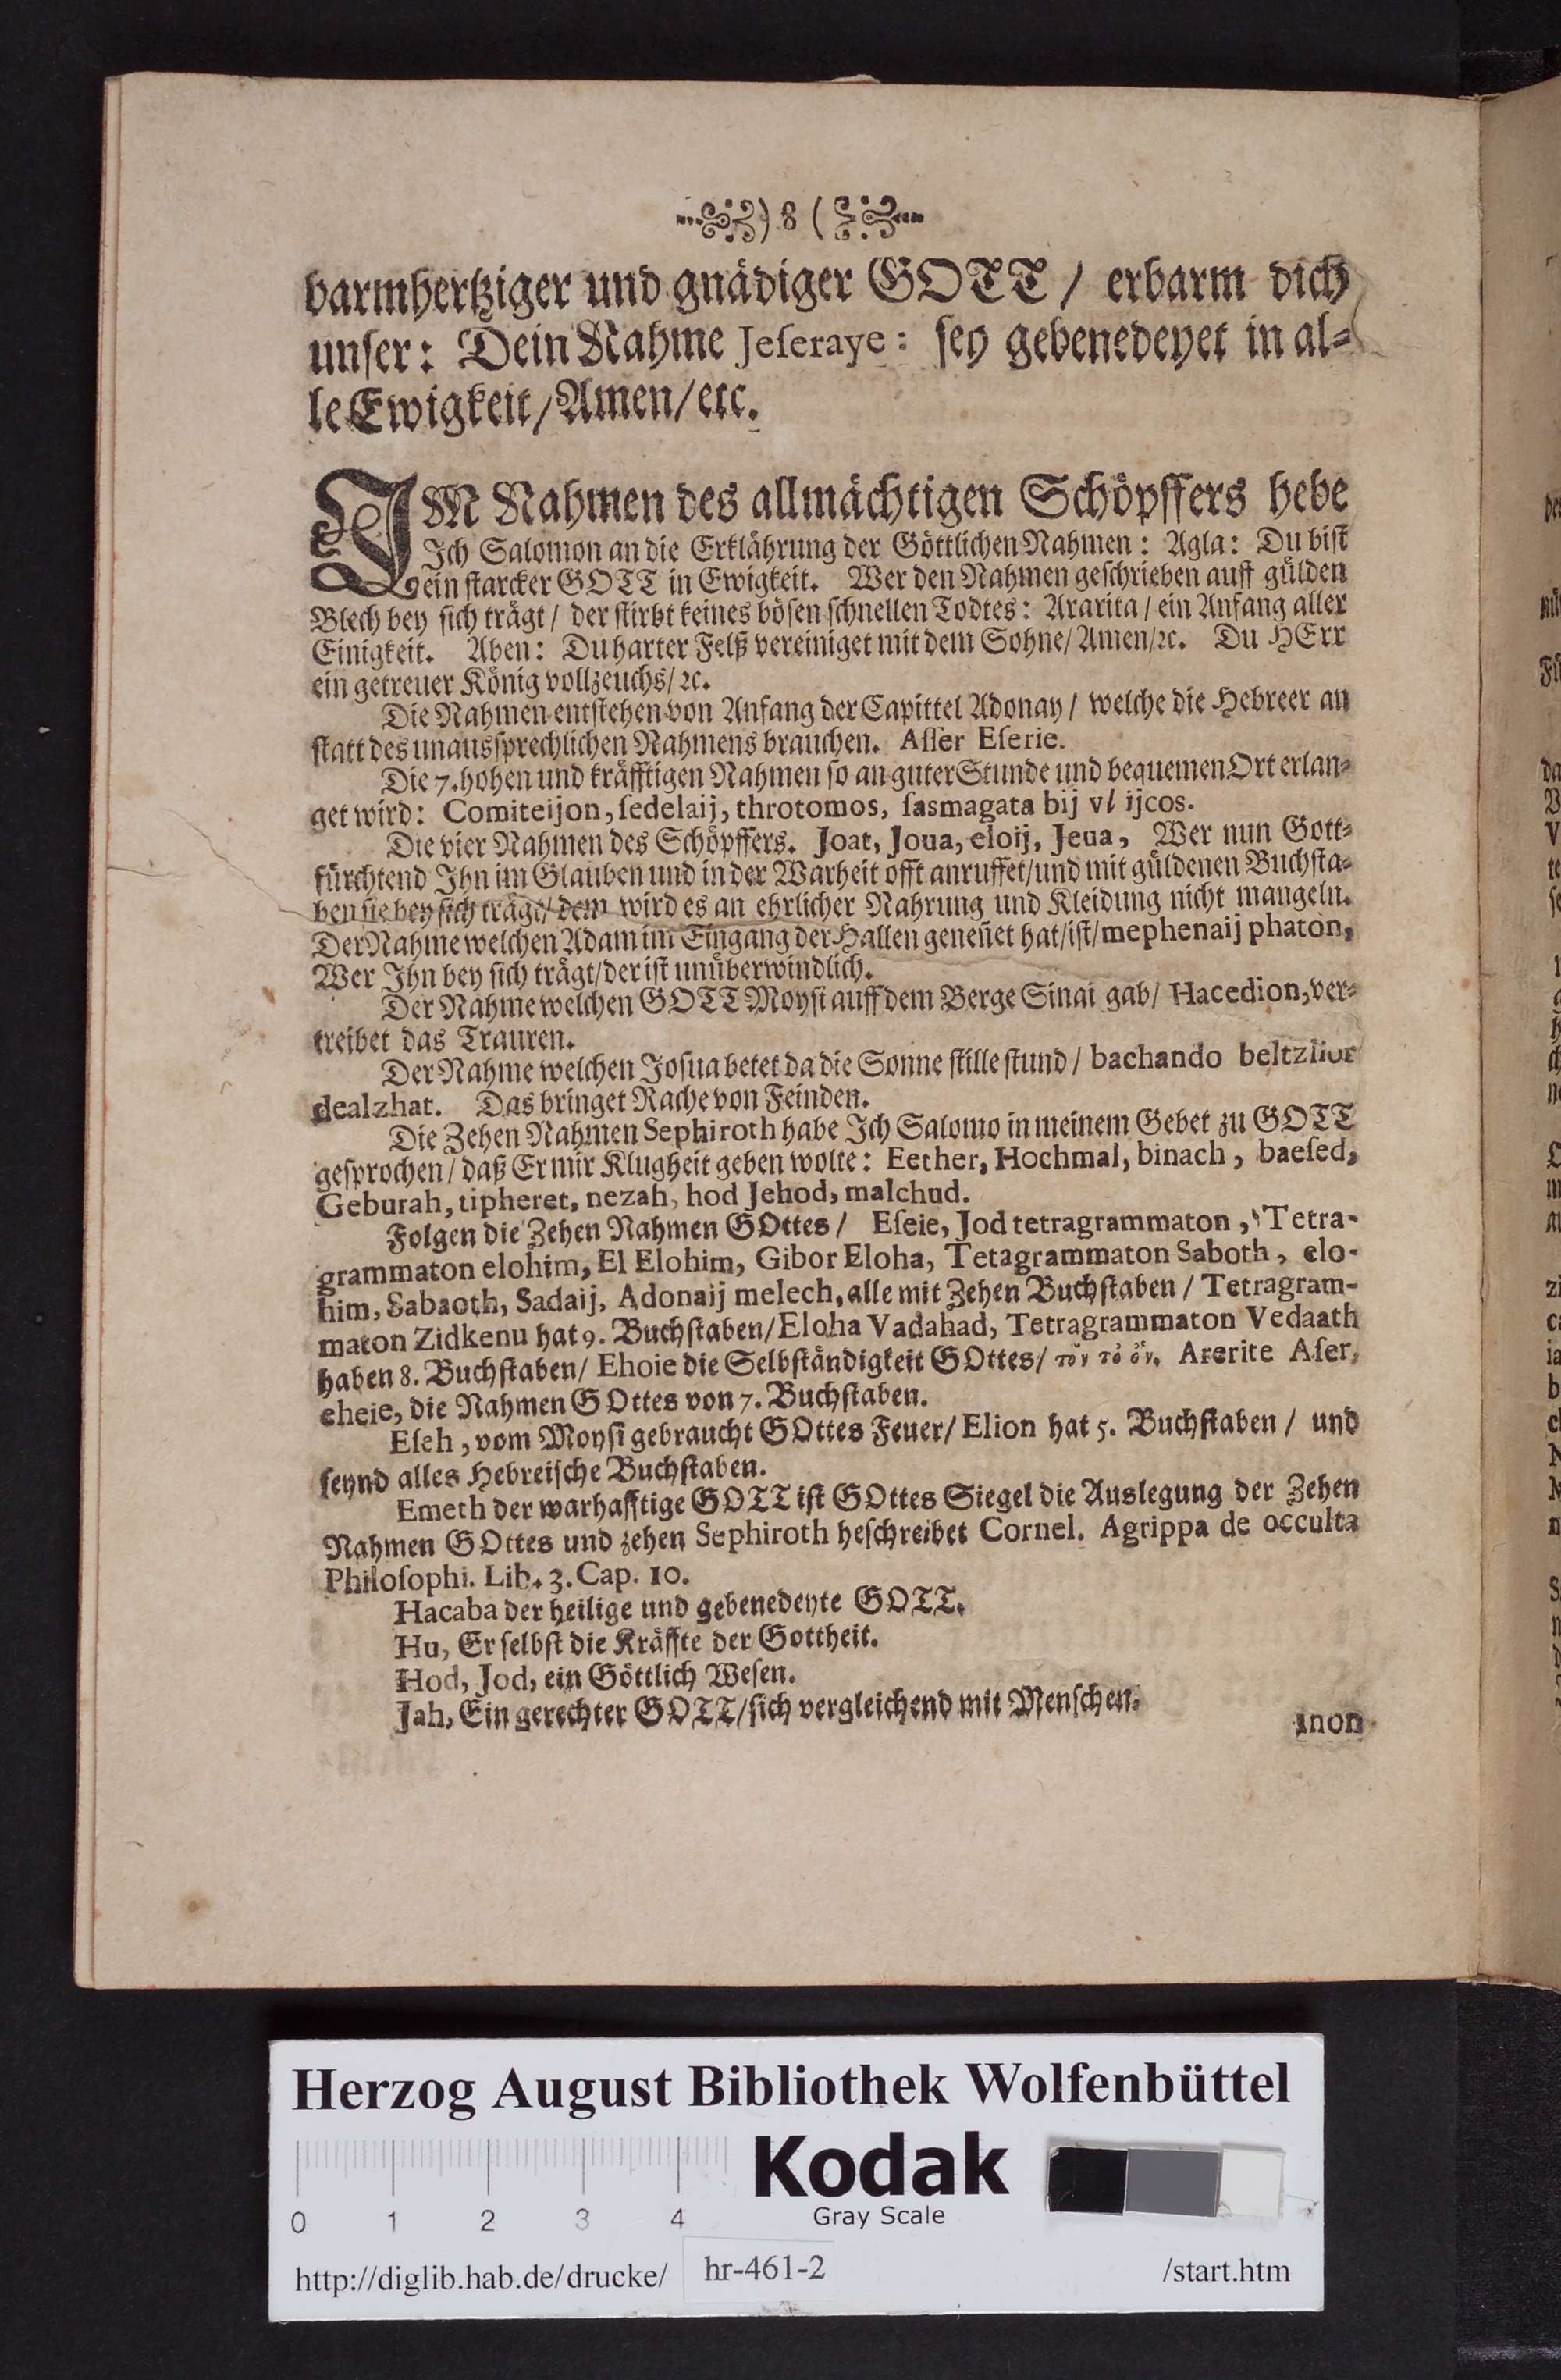 ) 8 (
barmhertziger und gnädiger GOTT / erbarm dich
unser: Dein Nahme Jeſeraye: ſey gebenedeyet in al-
le Ewigkeit/Amen/etc.
IM Nahmen des allmächtigen Schöpffers hebe
Ich Salomon an die Erklährung der Göttlichen Nahmen: Agla: Du biſt
ein ſtarcker GOTT in Ewigkeit. Wer den Nahmen geſchrieben auff gülden
Blech bey ſich trägt/ der ſtirbt keines böſen ſchnellen Todtes: Ararita / ein Anfang aller
Einigkeit. Aben: Du harter Felß vereiniget mit dem Sohne/ Amen/ꝛc. Du HErr
ein getreuer König vollzeuchs/ ꝛc.
Die Nahmen entſtehen von Anfang der Capittel Adonay / welche die Hebreer an
ſtatt des unausſprechlichen Nahmens brauchen. Aſſer Eſerie.
Die 7. hohen und kräfftigen Nahmen ſo an guter Stunde und bequemen Ort erlan-
get wird: Comiteijon, ſedelaij, throtomos, ſasmagata bij vl ijcos.
Die vier Nahmen des Schöpffers. Joat, Joua, eloij, Jeua, Wer nun Gott-
fürchtend Ihn im Glauben und in der Warheit offt anruffet/und mit güldenen Buchſta-
ben ſie bey ſich trägt/ dem wird es an ehrlicher Nahrung und Kleidung nicht mangeln.
Der Nahme welchen Adam im Eingang der Hallen geneñet hat/iſt/mephenaij phaton,
Wer Ihn bey ſich trägt/der iſt unüberwindlich.
Der Nahme welchen GOTT Moyſi auff dem Berge Sinai gab/ Hacedion, ver-
treibet das Trauren.
Der Nahme welchen Joſua betet da die Sonne ſtille ſtund / bachando beltzlior
dealzhat. Das bringet Rache von Feinden.
Die Zehen Nahmen Sephiroth habe Ich Salomo in meinem Gebet zu GOTT
geſprochen / daß Er mir Klugheit geben wolte: Eether, Hochmal, binach, baeſed,
Geburah, tipheret, nezah, hod Jehod, malchud.
Folgen die Zehen Nahmen GOttes / Eſeie, Jod tetragrammaton, Tetra-
grammaton elohim, El Elohim, Gibor Eloha, Tetagrammaton Saboth, elo-
him, Sabaoth, Sadaij, Adonaij melech, alle mit Zehen Buchſtaben / Tetragram-
maton Zidkenu hat 9. Buchſtaben/Eloha Vadahad, Tetragrammaton Vedaath
haben 8. Buchſtaben/ Ehoie die Selbſtändigkeit GOttes/ τὸν τὸ ὄν. Arerite Aſer,
eheie, die Nahmen GOttes von 7. Buchſtaben.
Eſeh, vom Moyſi gebraucht GOttes Feuer/ Elion hat 5. Buchſtaben / und
ſeynd alles Hebreiſche Buchſtaben.
Emeth der warhafftige GOTT iſt GOttes Siegel die Auslegung der Zehen
Nahmen GOttes und zehen Sephiroth heſchreibet Cornel. Agrippa de occulta
Philoſophi. Lib. 3. Cap. 10.
Hacaba der heilige und gebenedeyte GOTT.
Hu, Er ſelbſt die Kräffte der Gottheit.
Hod, Jod, ein Göttlich Weſen.
Jah, Ein gerechter GOTT/ſich vergleichend mit Menſchen.
inon
Herzog August Bibliothek Wolfenbüttel
Kodak
Gray Scale
0 1 2 3 4
http://diglib.hab.de/drucke/ hr-461-2 /start.htm